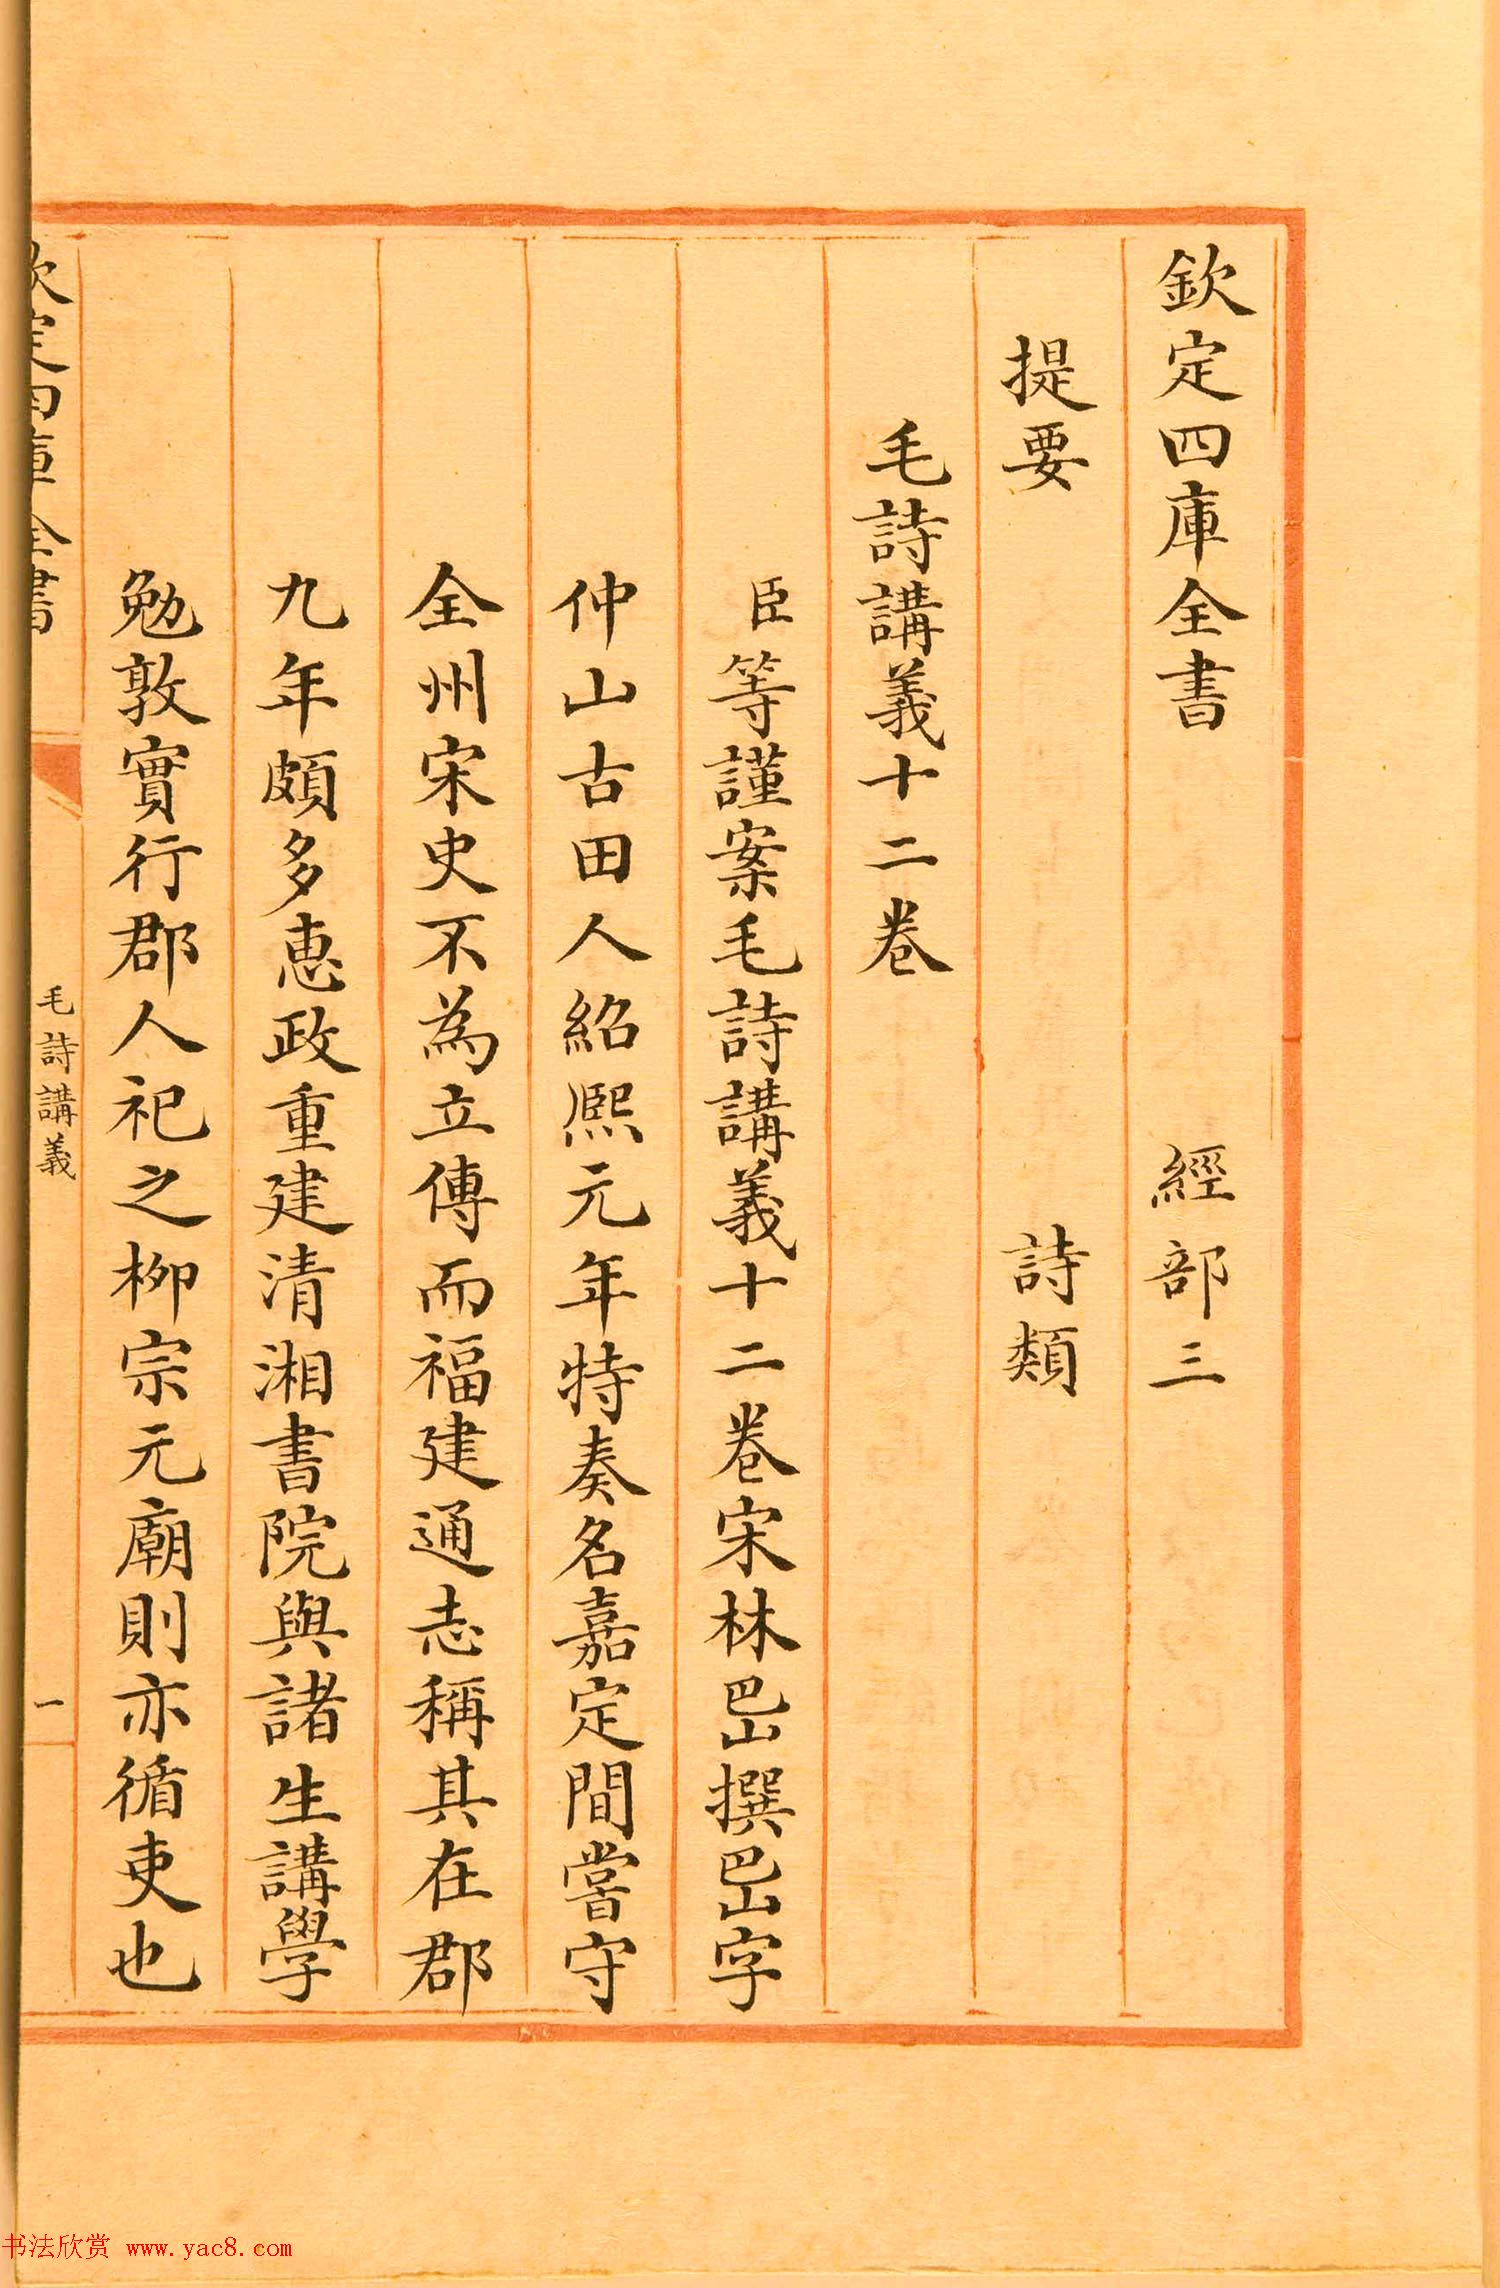 欽定四庫全書 經部三
提要 詩類
毛詩講義十二卷
臣等謹案毛詩講義十二卷宋林岊撰岊字
仲山古田人紹熙元年特奏名嘉定間嘗守
全州宋史不為立傳而福建通志稱其在郡
九年頗多惠政重建清湘書院與諸生講學
勉敦實行郡人祀之柳宗元廟則亦循吏也
欽定四庫全書 毛詩講義 一
书法欣赏 www.yac8.com